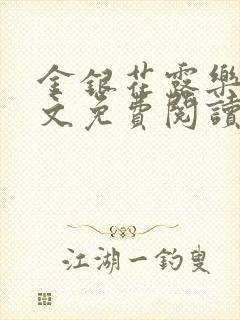 金銀花露樂
文免費閱讀
江湖一釣叟